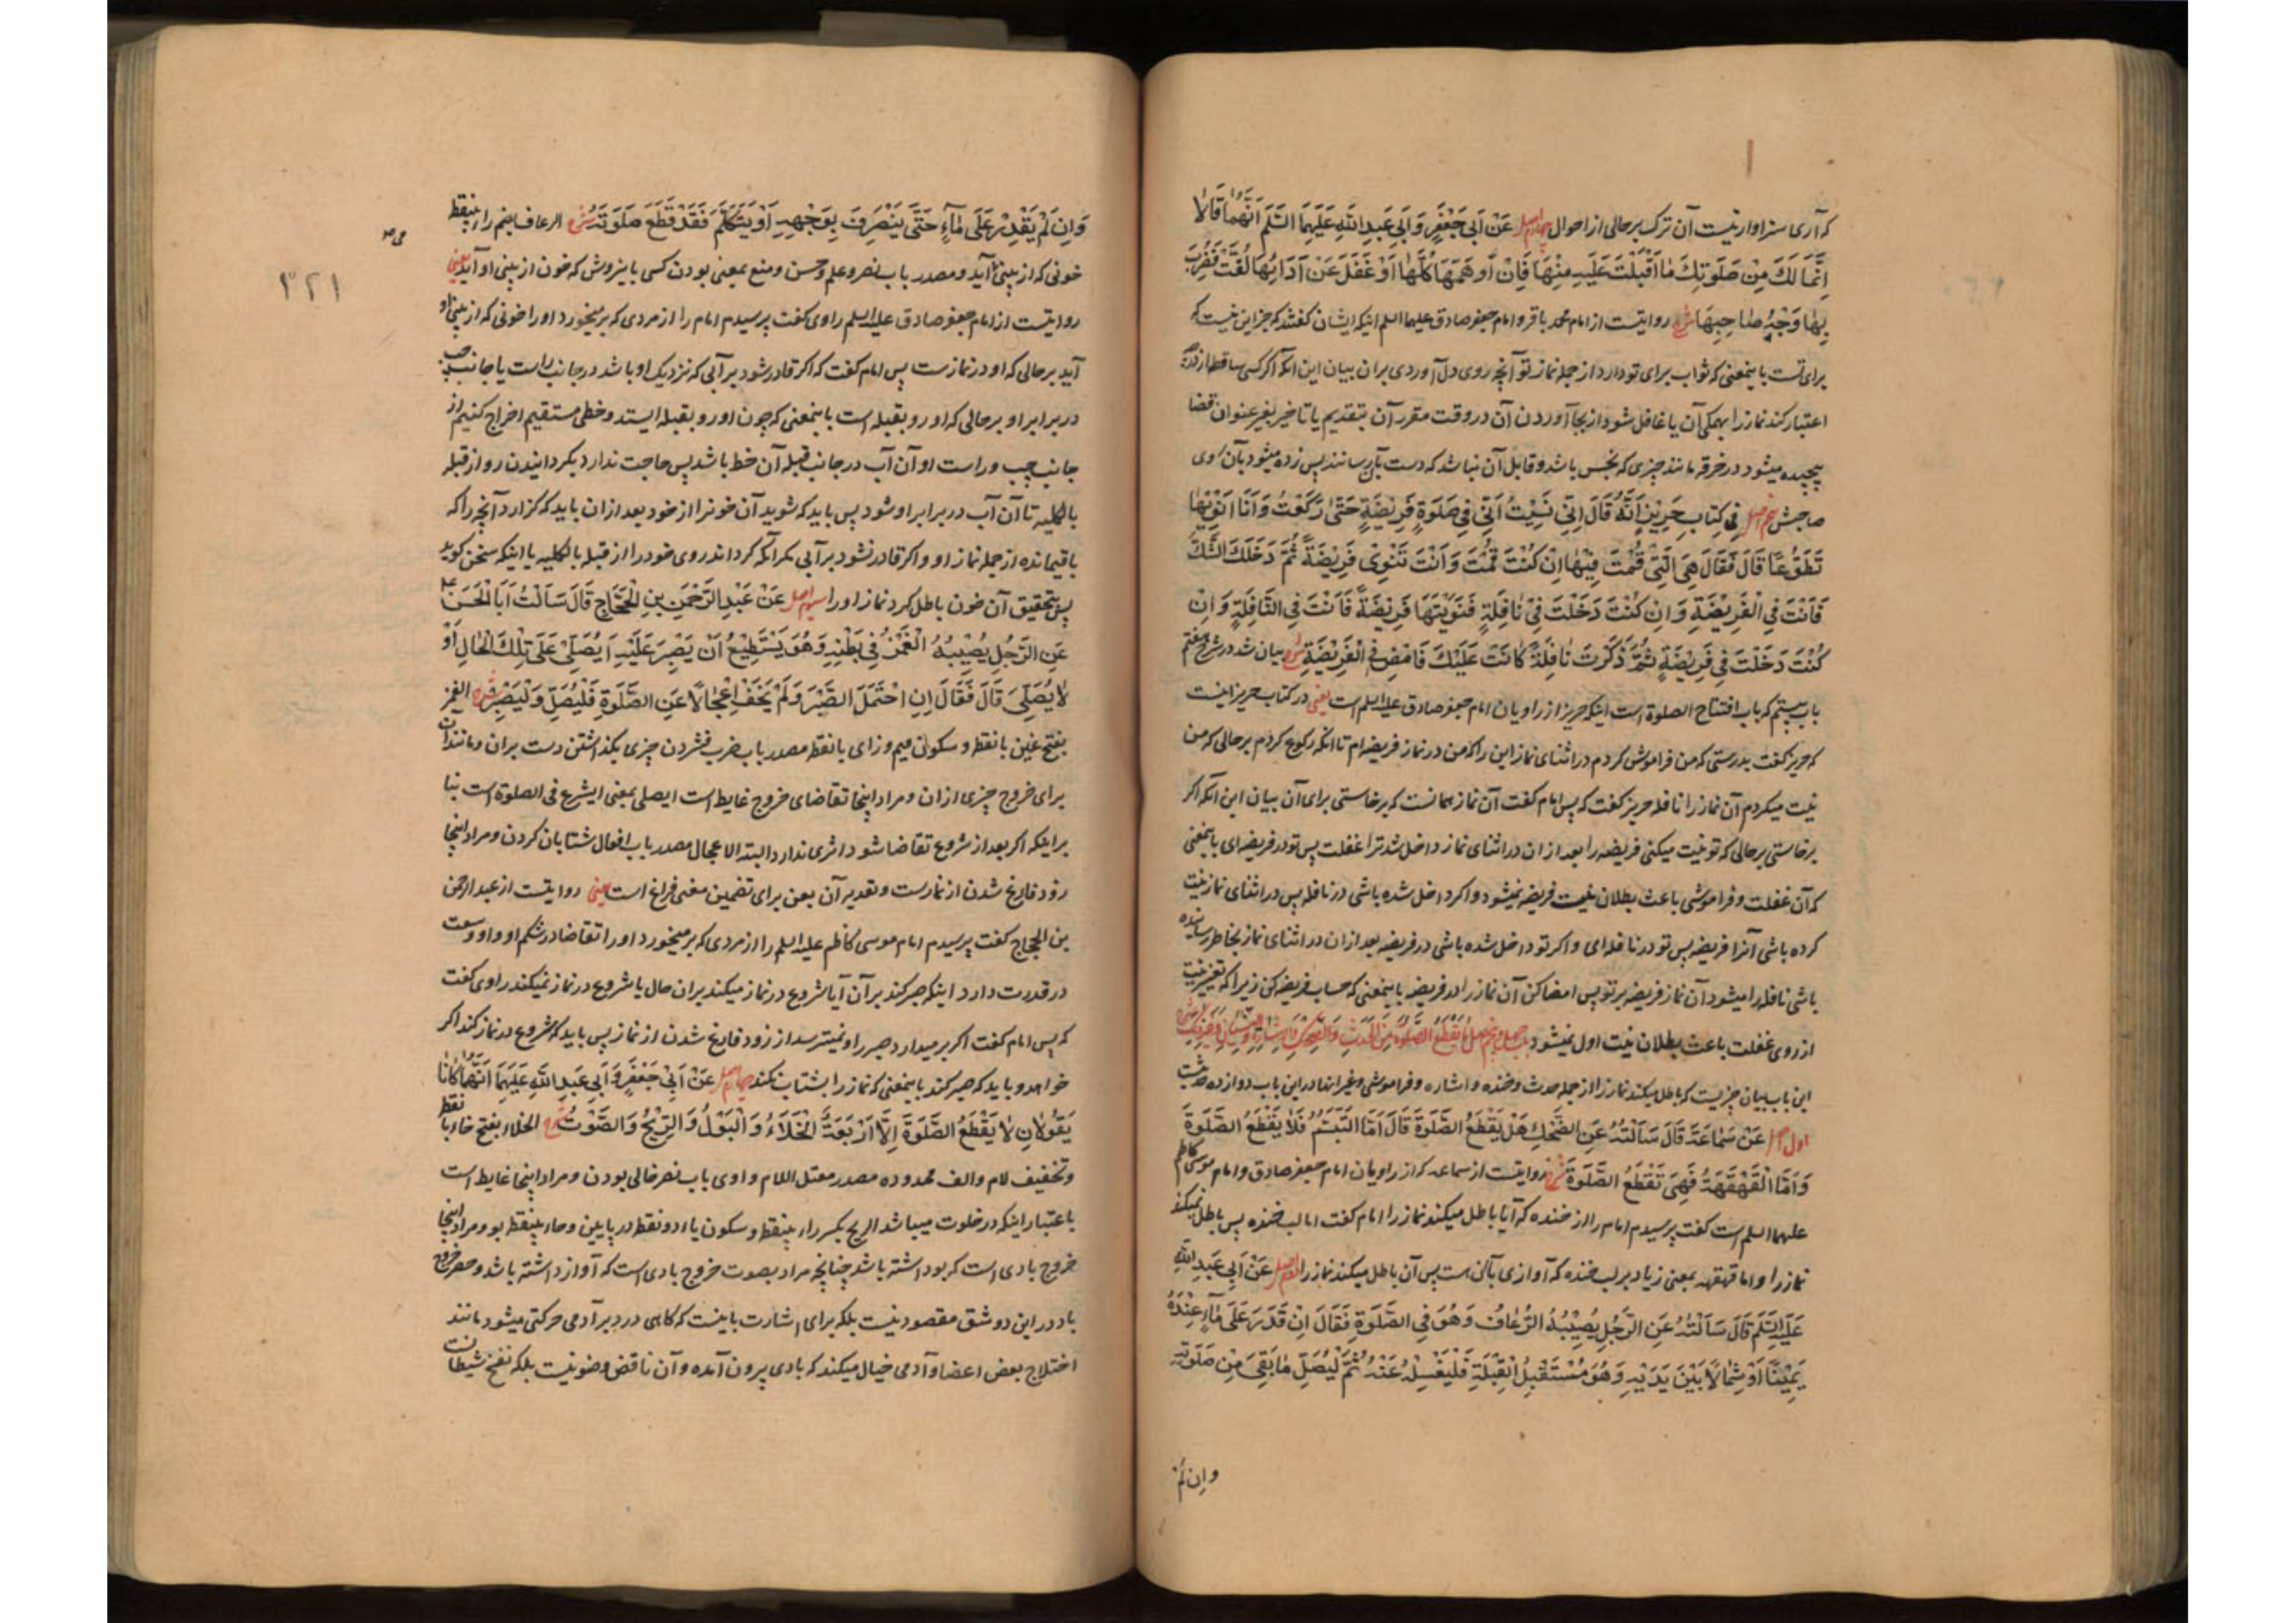 که آری سزاوار نیست آن ترک بر حالی از احوال چهارم اصل عَنْ اَبِی جَعْفَرٍ وَ اَبِی عَبْدِ اللّٰهِ عَلَیْهِمَا السَّلَم اَنَّهُمٰا قٰالاٰ
اِنَّمٰا لَكَ مِنْ صَلَوتِكَ مٰا اَقْبَلْتَ عَلَیْهِ مِنْهٰا فَاِنْ اَوهَمَهٰا كُلَّهٰا اَوْ غَفَلَ عَنْ اَدٰائِهٰا لُفَّتْ فَضُرِبَ
بِهٰا وَجْهُ صٰاحِبِهٰا شرح روایتست از امام محمد باقر و امام جعفر صادق علیهما السلم اینکه ایشان گفتند که جز این نیست که
برای تست باینمعنی که ثواب برای تو دارد از جمله نماز تو آنچه روی دل آوردی بران بیان این آنکه اگر کسی ساقط از درجه
اعتبار کند نماز را بهمگی آن یا غافل شود از بجا آوردن آن در وقت مقرر آن بتقدیم یا تاخیر بغیر عنوان قضا
پیچیده میشود در خرقه مانند چیزی که نجس باشد و قابل آن نباشد که دست بآن رسانند پس زده میشود بآن روی
صاحبش پنجم اصل فِی كِتٰابِ حَرِیْزٍ اَنَّهُ قٰالَ اِنِّی نَسِیْتُ اَنِّی فِی صَلَوةٍ فَرِیْضَةٍ حَتّٰی رَكَعْتُ وَ اَنَا اَنْوِیْهٰا
تَطَوُّعًا قٰالَ فَقٰالَ هِیَ الَّتِی قُمْتَ فِیْهٰا اِنْ كُنْتَ قُمْتَ وَ اَنْتَ تَنْوِیْ فَرِیْضَةً ثُمَّ دَخَلَكَ الشَّكُّ
فَاَنْتَ فِی الْفَرِیْضَةِ وَ اِنْ كُنْتَ دَخَلْتَ فِیْ نٰافِلَةٍ فَنَوَیْتَهَا فَرِیْضَةً فَاَنْتَ فِی النَّافِلَةِ وَ اِنْ
كُنْتَ دَخَلْتَ فِی فَرِیْضَةٍ ثُمَّ ذَكَرْتَ نٰافِلَةً كٰانَتْ عَلَیْكَ فَامْضِ فِی الْفَرِیْضَةِ شرح بیان شد در شرح هفتم
باب بیستم که باب افتتاح الصلوة است اینکه حریز از راویان امام جعفر صادق علیه السلم است یعنی در کتاب حریز اینست
که حریز گفت بدرستی که من فراموش کردم در اثنای نماز این را که من در نماز فریضه ام تا آنکه رکوع کردم بر حالی که من
نیت میکردم آن نماز را نافله حریز گفت که پس امام گفت آن نماز همانست که برخاستی برای آن بیان این آنکه اگر
برخاستی بر حالی که تو نیت میکنی فریضه را بعد از ان در اثنای نماز داخل شد ترا غفلت پس تو در فریضه ای باینمعنی
که آن غفلت و فراموشی باعث بطلان نیت فریضه نمیشود و اگر داخل شده باشی در نافله پس در اثنای نماز نیت
کرده باشی آنرا فریضه پس تو در نافله ای و اگر تو داخل شده باشی در فریضه بعد از ان در اثنای نماز بخاطر رسانیده
باشی نافله را میشود آن نماز فریضه بر تو پس امضا کن آن نماز را در فریضه باینمعنی که حساب فریضه کن زیرا که تغییر نیت
از روی غفلت باعث بطلان نیت اول نمیشود باب چهل و پنجم اصل مٰا یَقْطَعُ الصَّلوٰةَ مِنَ الْحَدَثِ وَ الضِّحْكِ وَ الْاِشٰارَةِ وَ النِّسْیٰانِ وَ غَیْرِ ذٰلِكَ شرح
این باب بیان چیزیست که باطل میکند نماز را از جمله حدث و خنده و اشاره و فراموشی و غیر انها در این باب دوازده حدیث
اول اصل عَنْ سَمٰاعَةَ قٰالَ سَاَلْتُهُ عَنِ الضَّحْكِ هَلْ یَقْطَعُ الصَّلَوةَ قٰالَ اَمَّا التَّبَسُّمُ فَلاٰ یَقْطَعُ الصَّلَوةَ
وَ اَمَّا الْقَهْقَهَةُ فَهِیَ تَقْطَعُ الصَّلَوةَ شرح روایتست از سماعه که از راویان امام جعفر صادق و امام موسی کاظم
علیهما السلم است گفت پرسیدم امام را از خنده که آیا باطل میکند نماز را امام گفت اما لب خنده پس باطل نمیکند
نماز را و اما قهقهه بمعنی زیاد بر لب خنده که آوازی با آن است پس آن باطل میکند نماز را دوم اصل عَنْ اَبِی عَبْدِ اللّٰهِ
عَلَیْهِ السَّلَم قٰالَ سَاَلْتُهُ عَنِ الرَّجُلِ یُصِیْبُهُ الرُّعٰافُ وَ هُوَ فِی الصَّلَوةِ فَقٰالَ اِنْ قَدَرَ عَلَی مٰآءٍ عِنْدَهُ
یَمِیْنًا اَوْ شِمٰالاً بَیْنَ یَدَیْهِ وَ هُوَ مُسْتَقْبِلُ الْقِبْلَةِ فَلْیَغْسِلْهُ عَنْهُ ثُمَّ لْیُصَلِّ مٰا بَقِیَ مِنْ صَلَوتِهِ
وان لم
وَ اِنْ لَمْ یَقْدِرْ عَلَی مٰآءٍ حَتَّی یَنْصَرِفَ بِوَجْهِهِ اَوْ یَتَكَلَّمَ فَقَدْ قَطَعَ صَلَوتَهُ شرح الرعاف بضم راء بینقطه
خونی که از بینی آید و مصدر باب نصر و علم و حسن و منع بمعنی بودن کسی باینروش که خون از بینی او آید یعنی
روایتست از امام جعفر صادق علیه السلم راوی گفت پرسیدم امام را از مردی که بر میخورد او را خونی که از بینی او
آید بر حالی که او در نماز ست پس امام گفت که اگر قادر شود بر آبی که نزدیک او باشد در جانب راست یا جانب چپ
در برابر او بر حالی که او رو بقبله است باینمعنی که چون او رو بقبله ایستد و خطی مستقیم اخراج کنیم از
جانب چپ و راست او آن آب در جانب قبله آن خط باشد پس حاجت ندارد بگردانیدن رو از قبله
بالکلیه تا آن آب در برابر او شود پس باید که شوید آن خونرا از خود بعد از ان باید که گزارد آنچه را که
باقیمانده از جمله نماز او و اگر قادر نشود بر آبی مگر آنکه گرداند روی خود را از قبله بالکلیه یا اینکه سخن گوید
پس بتحقیق آن خون باطل کرد نماز او را سیوم اصل عَنْ عَبْدِ الرَّحْمٰنِ بنِ الْحَجَّاجِ قٰالَ سَاَلْتُ اَبَا الْحَسَنِ ع
عَنِ الرَّجُلِ یُصِیْبُهُ الْغَمْزُ فِی بَطْنِهِ وَ هُوَ یَسْتَطِیْعُ اَنْ یَصْبِرَ عَلَیْهِ اَ یُصَلِّیْ عَلَی تِلْكَ الْحٰالِ اَوْ
لاٰ یُصَلِّیَ قٰالَ فَقٰالَ اِنِ احْتَمَلَ الصَّبْرَ وَ لَمْ یَخَفْ اِعْجٰالاً عَنِ الصَّلَوةِ فَلْیُصَلِّ وَ لْیَصْبِرْ شرح الغمز
بفتح غین با نقطه و سکون میم و زای با نقطه مصدر باب ضرب فشردن چیزی بگذاشتن دست بران و مانند آن
برای خروج چیزی از ان و مراد اینجا تقاضای خروج غایط است ایصلی بمعنی ایشرع فی الصلوة است بنا
بر اینکه اگر بعد از شروع تقاضا شود اثری ندارد البته الاعجال مصدر باب افعال شتابان کردن و مراد اینجا
زود فارغ شدن از نمازست و تعدیه آن بعن برای تضمین معنی فراغ است یعنی روایتست از عبد الرحمن
بن الحجاج گفت پرسیدم امام موسی کاظم علیه السلم را از مردی که بر میخورد او را تقاضا در شکم او و او وسعت
در قدرت دارد اینکه صبر کند بر آن آیا شروع در نماز میکند بران حال یا شروع در نماز نمیکند راوی گفت
که پس امام گفت اگر بر میدارد صبر را و نمیترسد از زود فارغ شدن از نماز پس باید که شروع در نماز کند اگر
خواهد و باید که صبر کند باینمعنی که نماز را بشتاب نکند چهارم اصل عَنْ اَبِی جَعْفَرٍ وَ اَبِی عَبْدِ اللّٰهِ عَلَیْهِمَا اَنَّهُمٰا كٰانٰا
یَقُولاٰنِ لاٰ یَقْطَعُ الصَّلَوةَ اِلاَّ اَرْبَعَةٌ الْخَلاٰءُ وَ الْبَوْلُ وَ الرِّیْحُ وَ الصَّوْتُ شرح الخلاء بفتح خاء با نقطه
و تخفیف لام و الف ممدوده مصدر معتل اللام واوی باب نصر خالی بودن و مراد اینجا غایط است
باعتبار اینکه در خلوت میباشد الریح بکسر راء بینقطه و سکون یاء دو نقطه در پایین و حاء بینقطه بو و مراد اینجا
خروج بادی است که بو داشته باشد چنانچه مراد بصوت خروج بادی است که آواز داشته باشد و حصر خروج
باد در این دو شق مقصود نیست بلکه برای اشارت باینست که گاهی در دبر آدمی حرکتی میشود مانند
اختلاج بعض اعضا و آدمی خیال میکند که بادی بیرون آمده و آن ناقض وضو نیست بلکه نفخ شیطانست
۳۲۱